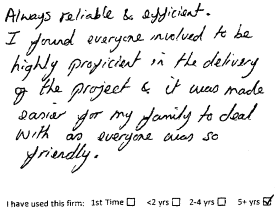 Always reliable & efficient.
I found everyone involved to be
highly proficient in the delivery
of the project & it was made
easier for my family to deal
with as everyone was so
friendly.
I have used this firm: 1st Time ☐ <2 yrs ☐ 2-4 yrs ☐ 5+ yrs ☑